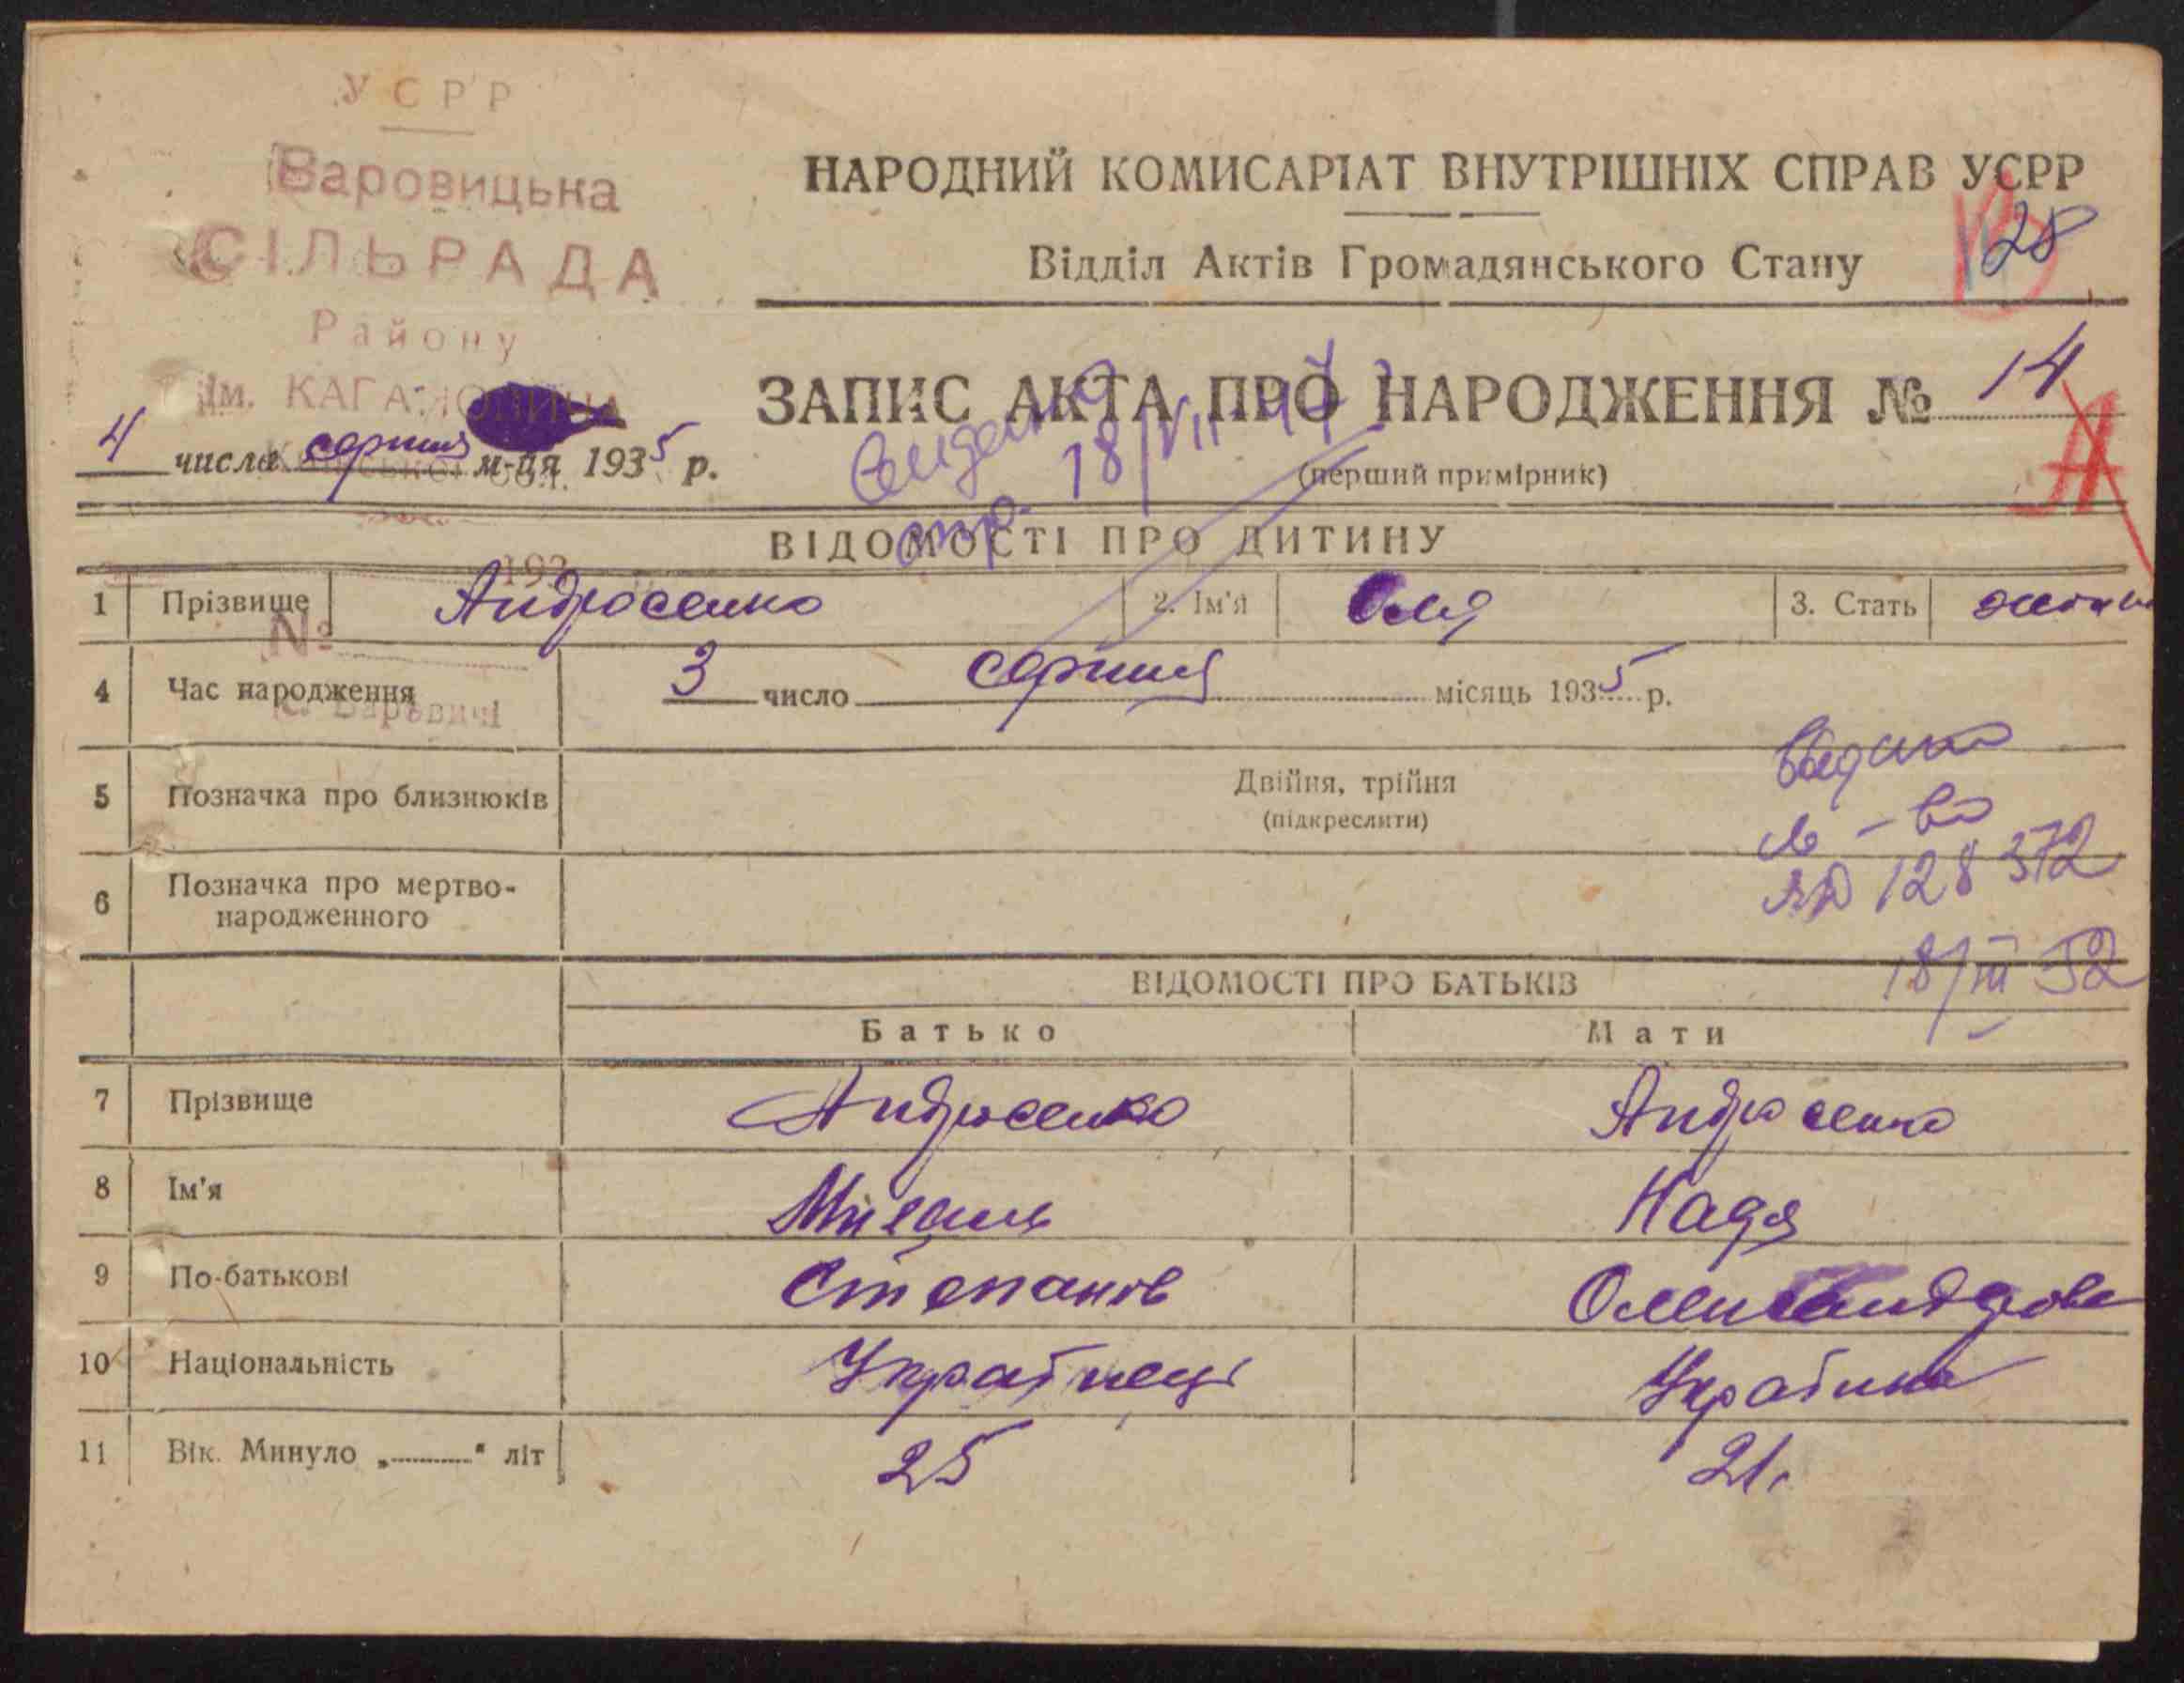 УСРР
Варовицька
СІЛЬРАДА
Району
ім. КАГАНОВИЧА
4 числа серпня м-ця 1935 р.
193
№
с. Варовичі
НАРОДНИЙ КОМИСАРІАТ ВНУТРІШНІХ СПРАВ УСРР
28
Відділ Актів Громадянського Стану
ЗАПИС АКТА ПРО НАРОДЖЕННЯ № 14
(перший примірник)
18/VII 47
А
ВІДОМОСТІ ПРО ДИТИНУ
1 Прізвище Андросенко 2. Ім'я Оля 3. Стать
4 Час народження 3 число серпня місяць 1935 р.
5 Позначка про близнюків Двійня, трійня
(підкреслити)
6 Позначка про мертво-
народженного
128372
18/III 52
ВІДОМОСТІ ПРО БАТЬКІВ
Батько Мати
7 Прізвище Андросенко Андросенко
8 Ім'я Надя
9 По-батькові Степанов
10 Національність Українець Українка
11 Вік. Минуло „ “ літ 25 21.